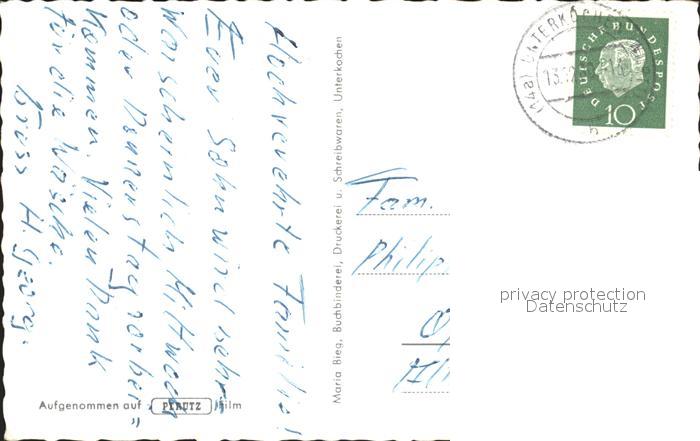 Hochverehrte Familie!
Euer Sohn wird sehr
warscheinlich Mittwoch
oder Donnerstag vorbei=
kommen. Vielen Dank
für die Wäsche.
Gruss H. Georg.
Aufgenommen auf PERUTZ Film
Maria Bieg, Buchbinderei, Druckerei u. Schreibwaren, Unterkochen
Fam.
Philip
DEUTSCHE BUNDESPOST
10
(14a) UNTERKOCHEN
privacy protection
Datenschutz